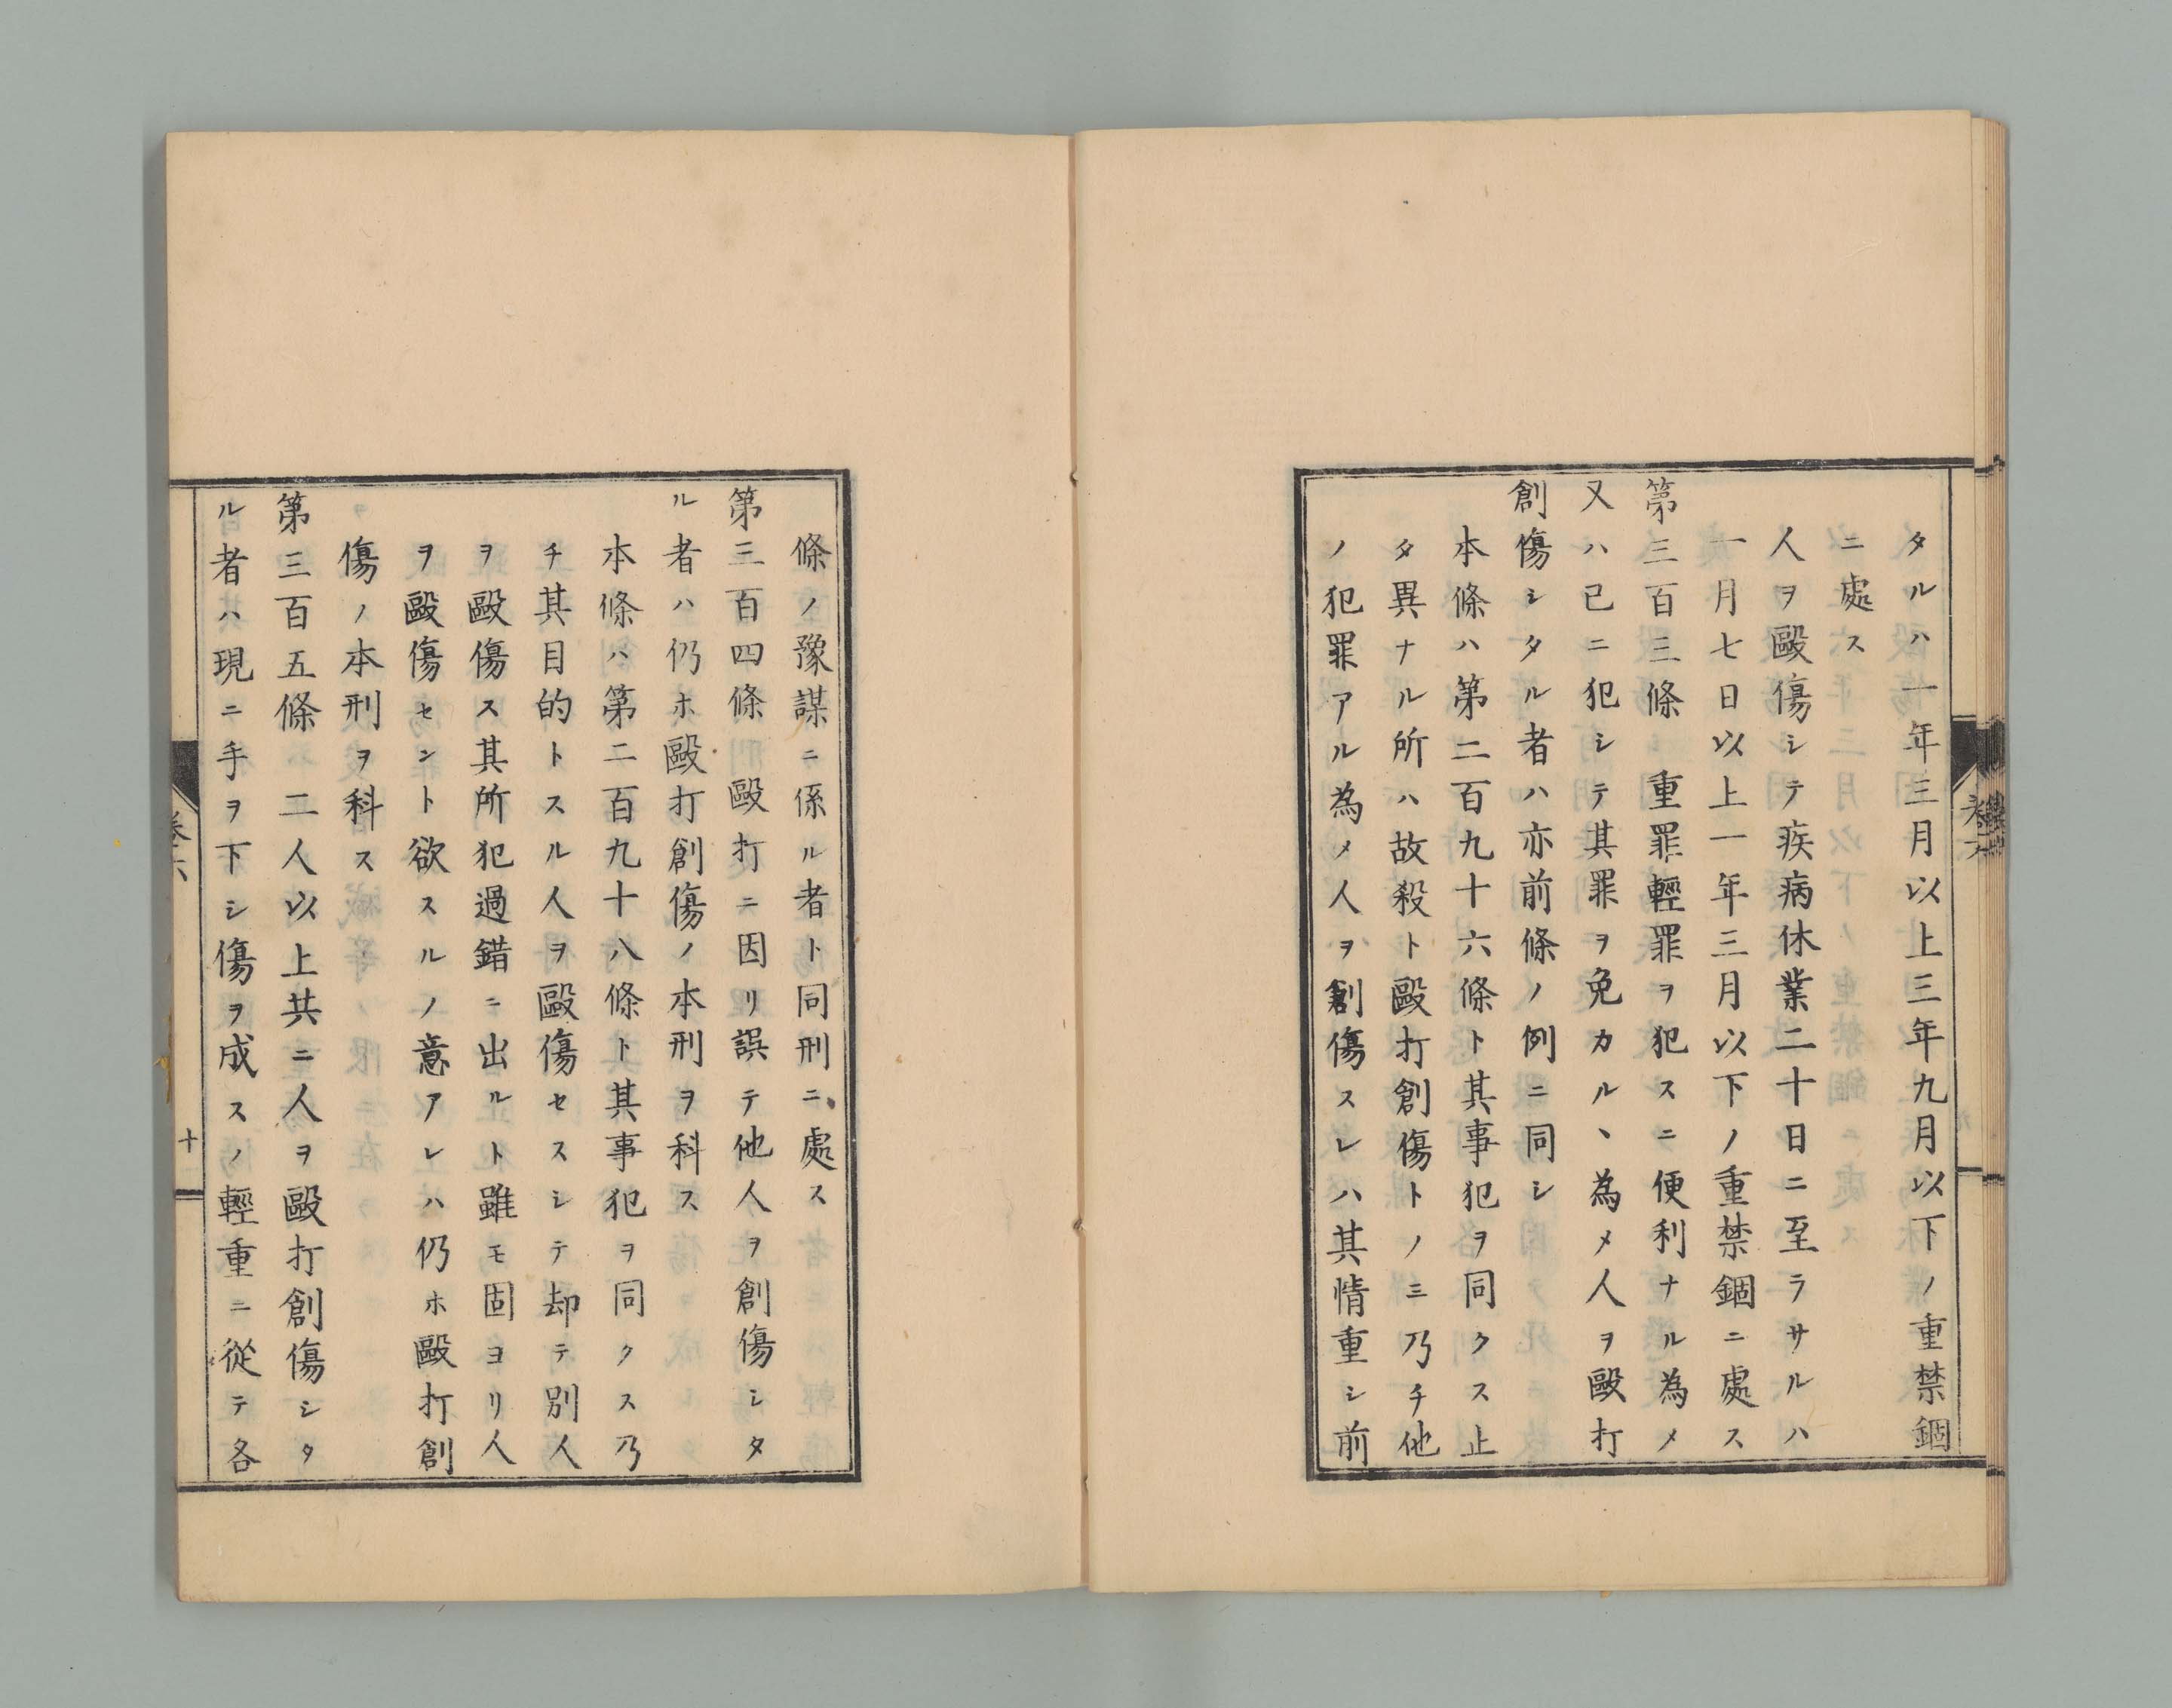 タルハ一年三月以上三年九月以下ノ重禁錮
ニ處ス
人ヲ毆傷シテ疾病休業二十日ニ至ラサルハ
一月七日以上一年三月以下ノ重禁錮ニ處ス
第三百三條　重罪輕罪ヲ犯スニ便利ナル為メ
又ハ已ニ犯シテ其罪ヲ免カルヽ為メ人ヲ毆打
創傷シタル者ハ亦前條ノ例ニ同シ
本條ハ第二百九十六條ト其事犯ヲ同クス止
タ異ナル所ハ故殺ト毆打創傷トノミ乃チ他
ノ犯罪アル為メ人ヲ創傷スレハ其情重シ前
條ノ豫謀ニ係ル者ト同刑ニ處ス
第三百四條　毆打ニ因リ誤テ他人ヲ創傷シタ
ル者ハ仍ホ毆打創傷ノ本刑ヲ科ス
本條ハ第二百九十八條ト其事犯ヲ同クス乃
チ其目的トスル人ヲ毆傷セスシテ却テ別人
ヲ毆傷ス其所犯過錯ニ出ルト雖モ固ヨリ人
ヲ毆傷セント欲スルノ意アレハ仍ホ毆打創
傷ノ本刑ヲ科ス
第三百五條　二人以上共ニ人ヲ毆打創傷シタ
ル者ハ現ニ手ヲ下シ傷ヲ成スノ輕重ニ從テ各
卷六
十